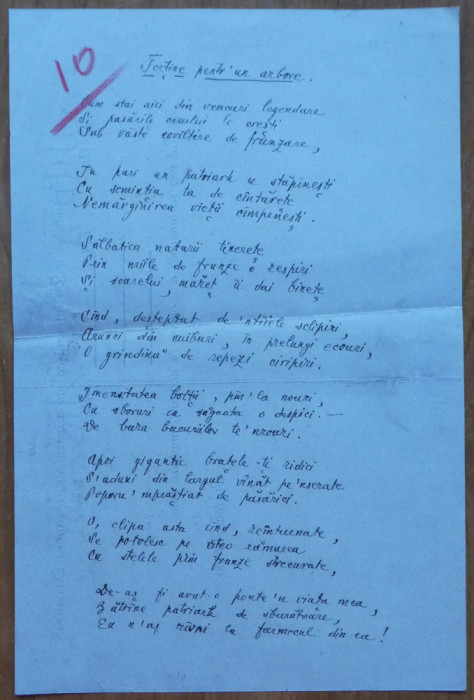 10
Terține pentr'un arbore.
Cum stai aici din veacuri legendare
Și pasările cerului le crești
Sub vaste coviltire de frunzare,
Tu pari un patriarh ce stăpînești
Cu seminția ta de cîntărețe
Nemărginirea vieții cîmpenești.
Sălbatica naturii tinerețe
Prin miile de frunze o respiri
Și soarelui, măreț îi dai binețe
Cînd, deșteptat de'ntîiele sclipiri,
Arunci din cuiburi, în prelungi ecouri,
O grindină de repezi ciripiri.
Imensitatea bolții, pîn'la nouri,
Cu sboruri ca săgeata o despici. —
De bura bucuriilor te'nrouri.
Apoi gigantic brațele-ți ridici
S'aduni din largul vînăt pe'nserate
Poporu'mprăștiat de păsărici.
O, clipa asta cînd, reînturnate,
Se potolesc pe rămurea
Cu stelele prin frunze strecurate,
De-aș fi avut-o poate'n viața mea,
Bătrîne patriarh de sburătoare,
Eu n'aș rîvni ca farmecul din ea!